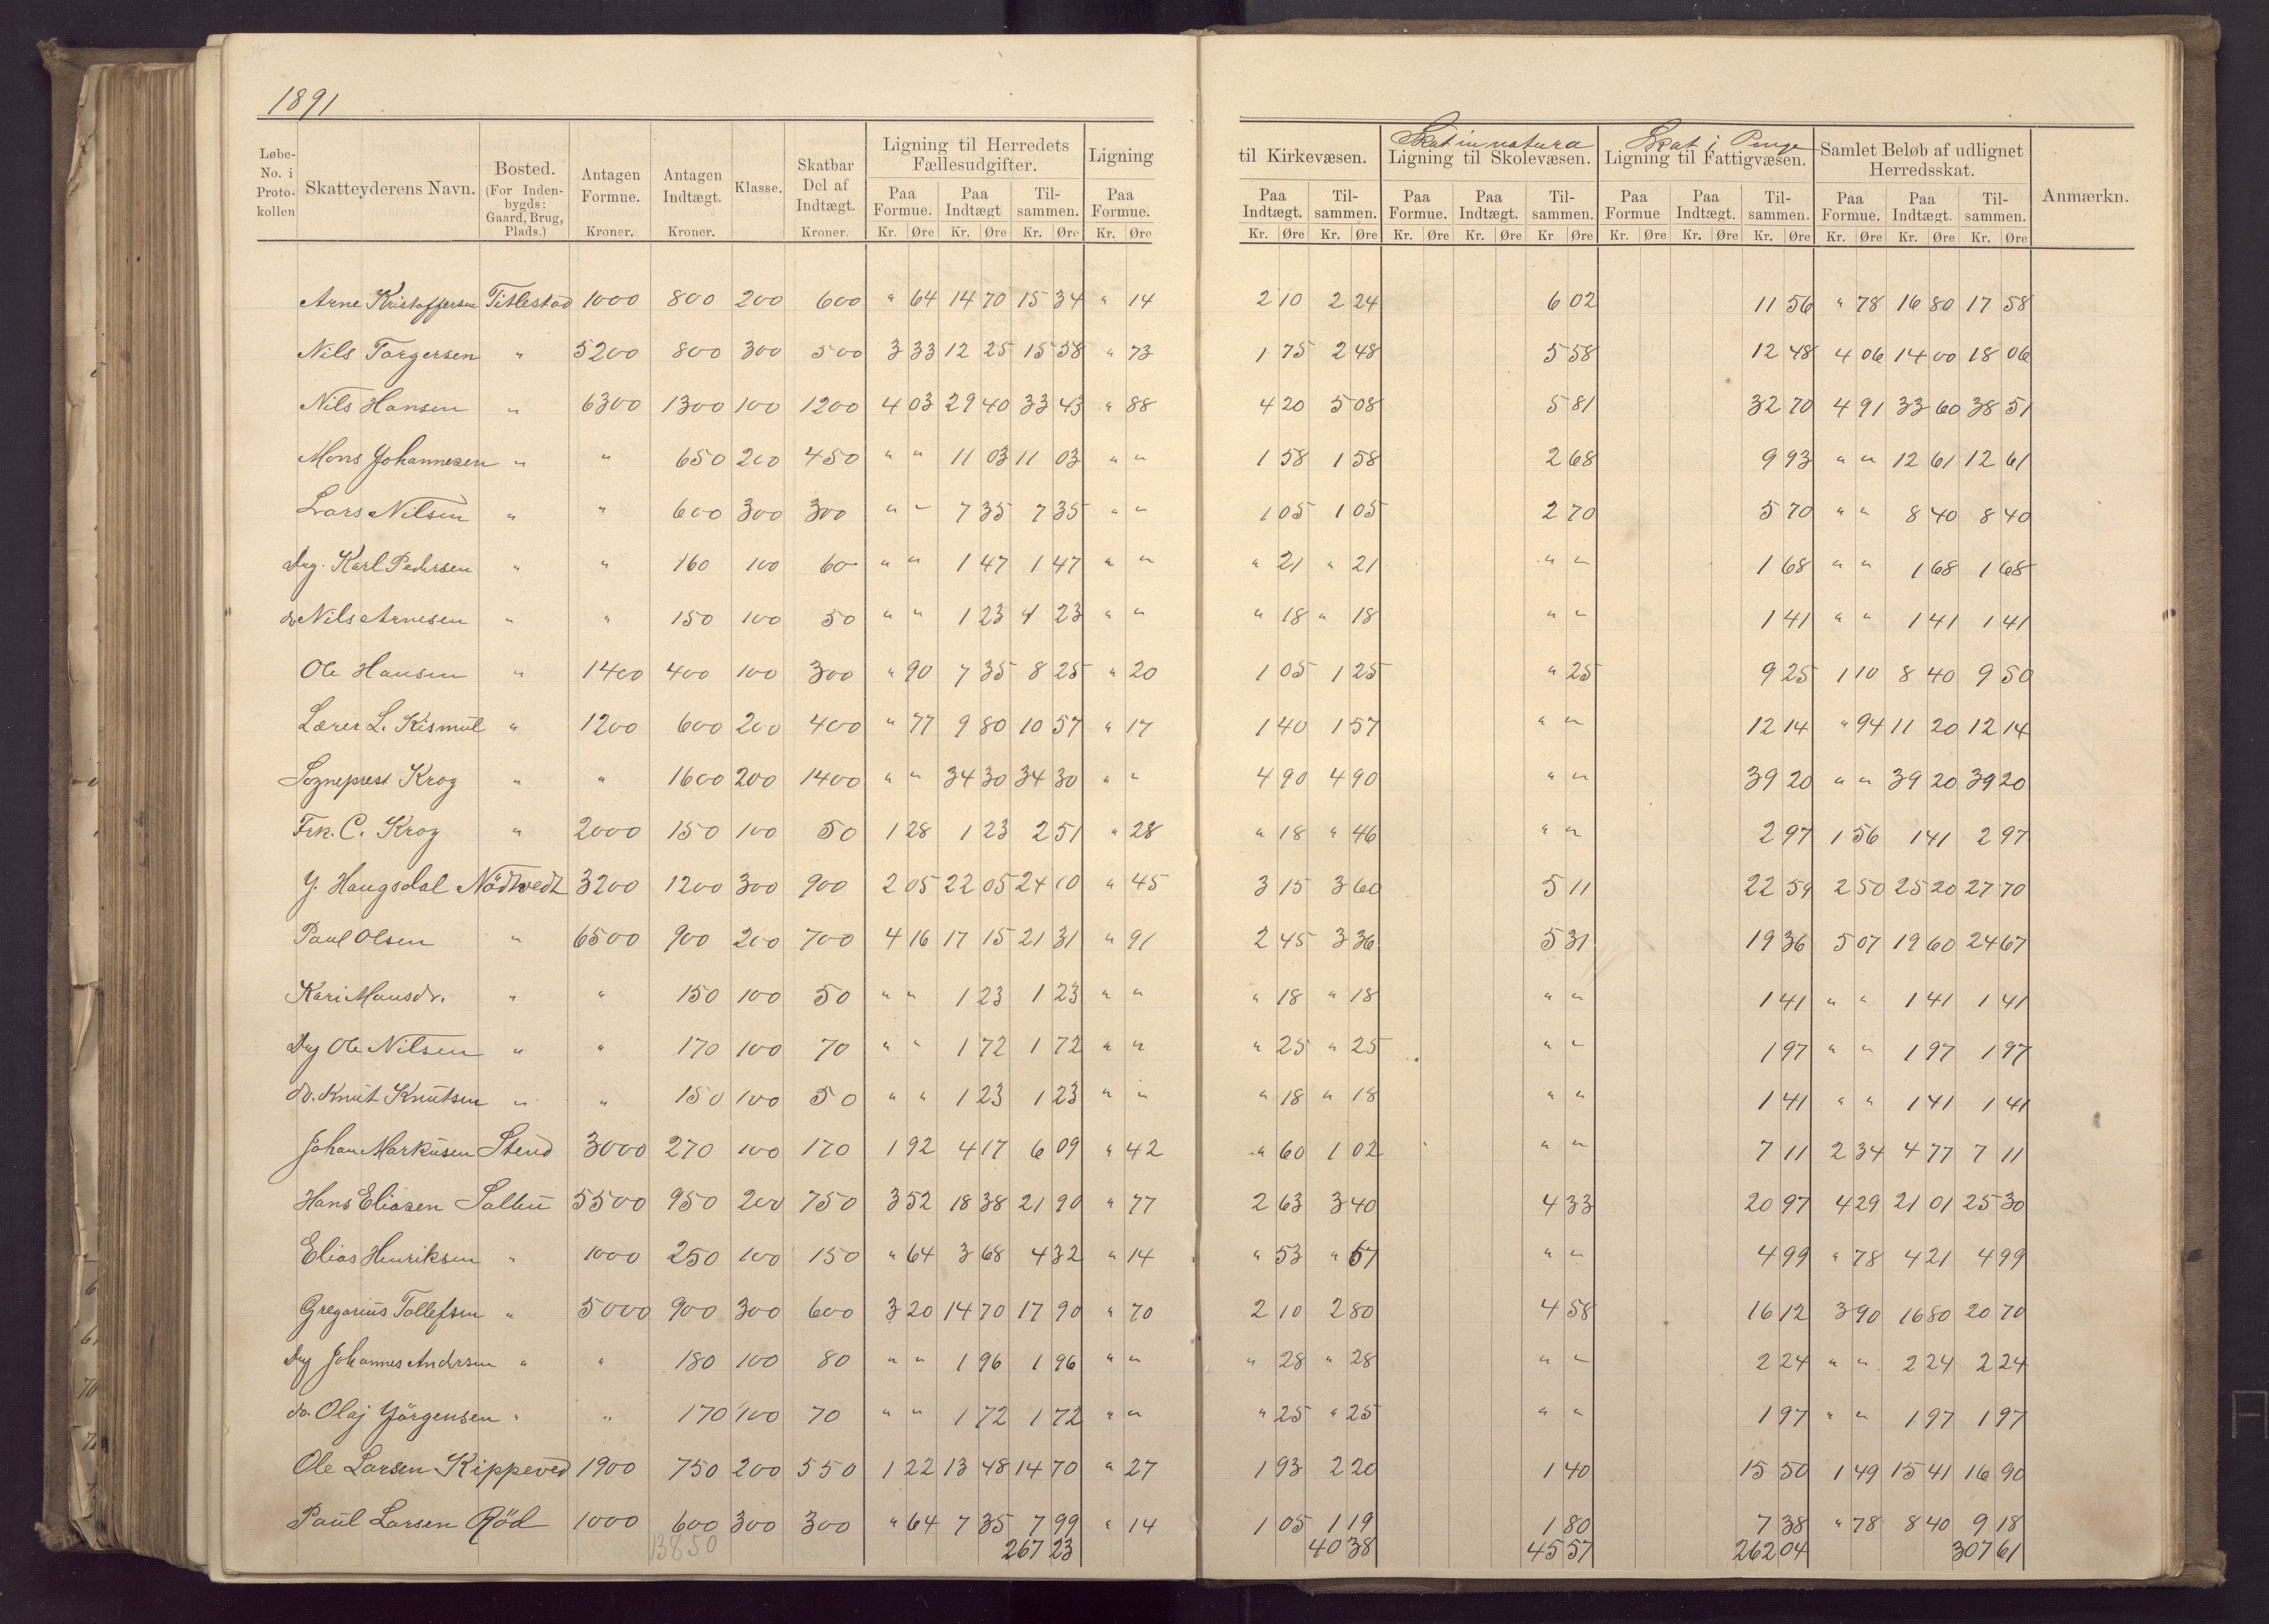 1891
Løbe-No. i Protokollen Skatteyderens Navn. Bosted. (For Indenbygds: Gaard, Brug, Plads.) Antagen Formue. Kroner. Antagen Indtægt. Kroner. Klasse. Skatbar Del af Indtægt. Kroner. Ligning til Herredets Fællesudgifter. Paa Formue. Kr. Øre Paa Indtægt Kr. Øre Tilsammen. Kr. Øre Ligning Paa Formue. Kr. Øre
til Kirkevæsen. Paa Indtægt. Kr. Øre Tilsammen. Kr. Øre Skat in natura Ligning til Skolevæsen. Paa Formue. Kr. Øre Paa Indtægt. Kr. Øre Tilsammen. Kr Øre Skat i Penge Ligning til Fattigvæsen. Paa Formue Kr. Øre Paa Indtægt. Kr. Øre Tilsammen. Kr. Øre Samlet Beløb af udlignet Herredsskat. Paa Formue. Kr. Øre Paa Indtægt. Kr. Øre Tilsammen. Kr. Øre Anmærkn.
Arne Kristoffersen Titlestad 1000 800 200 600 " 64 14 70 15 34 " 14 2 10 2 24 6 02 11 56 " 78 16 80 17 58
Nils Torgersen " 5200 800 300 500 3 33 12 25 15 58 " 73 1 75 2 48 5 58 12 48 4 06 14 00 18 06
Nils Hansen " 6300 1300 100 1200 4 03 29 40 33 43 " 88 4 20 5 08 5 81 32 70 4 91 33 60 38 51
Mons Johannesen " " 650 200 450 " " 11 03 11 03 " " 1 58 1 58 2 68 9 93 " " 12 61 12 61
Lars Nilsen " " 600 300 300 " " 7 35 7 35 " " 1 05 1 05 2 70 5 70 " " 8 40 8 40
Drg. Karl Pedersen " " 160 100 60 " " 1 47 1 47 " " " 21 " 21 " " 1 68 " " 1 68 1 68
do Nils Arnesen " " 150 100 50 " " 1 23 1 23 " " " 18 " 18 " " 1 41 " " 1 41 1 41
Ole Hansen " 1400 400 100 300 " 90 7 35 8 25 " 20 1 05 1 25 " 25 9 25 1 10 8 40 9 50
Lærer L. Kismul " 1200 600 200 400 " 77 9 80 10 57 " 17 1 40 1 57 " " 12 14 " 94 11 20 12 14
Sogneprest Krog " " 1600 200 1400 " " 34 30 34 30 " " 4 90 4 90 " " 39 20 " " 39 20 39 20
Frk. C. Krog " 2000 150 100 50 1 28 1 23 2 51 " 28 " 18 " 46 " " 2 97 1 56 1 41 2 97
Y. Haugsdal Nödtvedt 3200 1200 300 900 2 05 22 05 24 10 " 45 3 15 3 60 5 11 22 59 2 50 25 20 27 70
Paul Olsen " 6500 900 200 700 4 16 17 15 21 31 " 91 2 45 3 36 5 31 19 36 5 07 19 60 24 67
Kari Monsdr. " " 150 100 50 " " 1 23 1 23 " " " 18 " 18 " " 1 41 " " 1 41 1 41
Drg Ole Nilsen " " 170 100 70 " " 1 72 1 72 " " " 25 " 25 " " 1 97 " " 1 97 1 97
do. Knut Knutsen " " 150 100 50 " " 1 23 1 23 " " " 18 " 18 " " 1 41 " " 1 41 1 41
Johan Markusen Stend 3000 270 100 170 1 92 4 17 6 09 " 42 " 60 1 02 " " 7 11 2 34 4 77 7 11
Hans Eliasen Salbu 5500 950 200 750 3 52 18 38 21 90 " 77 2 63 3 40 4 33 20 97 4 29 21 01 25 30
Elias Henriksen " 1000 250 100 150 " 64 3 68 4 32 " 14 " 53 " 67 " " 4 99 " 78 4 21 4 99
Gregorius Tollefsen " 5000 900 300 600 3 20 14 70 17 90 " 70 2 10 2 80 4 58 16 12 3 90 16 80 20 70
Drg Johannes Andersen " " 180 100 80 " " 1 96 1 96 " " " 28 " 28 " " 2 24 " " 2 24 2 24
do. Olaj Jörgensen " " 170 100 70 " " 1 72 1 72 " " " 25 " 25 " " 1 97 " " 1 97 1 97
Ole Larsen Kippeved 1900 750 200 550 1 22 13 48 14 70 " 27 1 93 2 20 1 40 15 50 1 49 15 41 16 90
Paul Larsen Röd 1000 600 300 300 " 64 7 35 7 99 " 14 1 05 1 19 1 80 7 38 " 78 8 40 9 18
13850 267 23 40 38 45 57 262 04 307 61